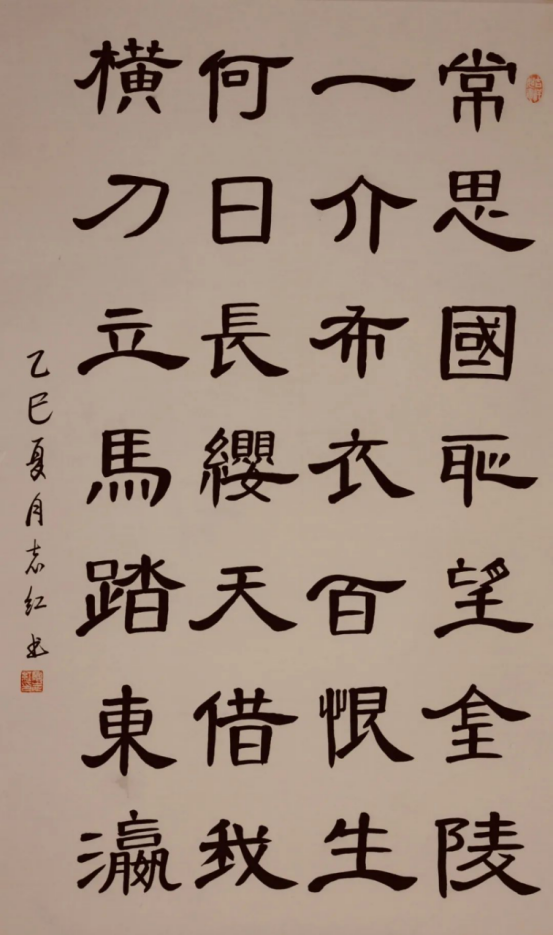 常思國恥望金陵
一介布衣百恨生
何日長纓天借我
橫刀立馬踏東瀛
乙巳夏月志紅书